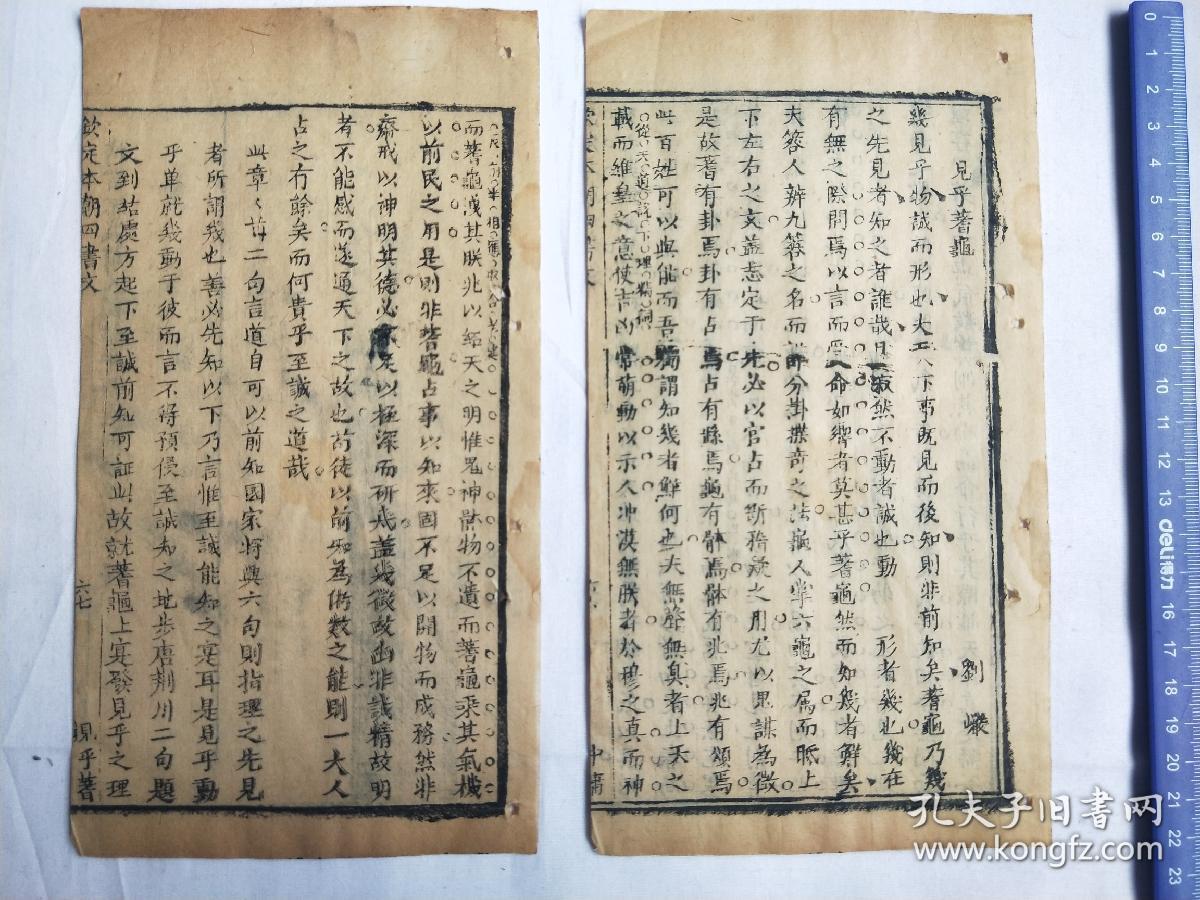 見乎蓍龜
劉巖
幾見乎物誠而形也夫天下事既見而後知則非前知矣蓍龜乃幾
之先見者知之者誰哉且寂然不動者誠也動之形者幾也幾在
有無之際間焉以言而受命如響者莫甚乎蓍龜然而知幾者鮮矣
夫簭人辨九簭之名而詳分掛揲奇之法龜人掌六龜之属而眂上
下左右之文蓋志定于先必以官占而斷稽疑之用尤以思謀為微
是故蓍有卦焉卦有占焉占有繇焉龜有體焉體有兆焉兆有頌焉
此百姓可以與能而吾獨謂知幾者鮮何也夫無聲無臭者上天之
載而維皇之意使吉凶常萌動以示人冲漠無朕者於穆之真而神
從天道說下理精詞
中庸
而蓍龜洩其朕兆以紹天之明惟鬼神體物不遺而蓍龜乘其氣機
以前民之用是則非蓍龜占事以知來固不足以開物而成務然非
齋戒以神明其德必不足以極深而研幾蓋幾微故幽非誠精故明
者不能感而遂通天下之故也苟徒以前知為術數之能則一大人
占之有餘矣而何貴乎至誠之道哉
此章首二句言道自可以前知國家將興六句則指理之先見
者所謂幾也善必先知以下乃言惟至誠能知之寔耳是見乎動
乎單就幾動于彼而言不得預侵至誠知之地步唐荆川二句題
文到結處方起下至誠前知可証此故就蓍龜上寔發見乎之理
欽定本朝四書文
六七
見乎蓍
deli得力
孔夫子旧书网
www.kongfz.com